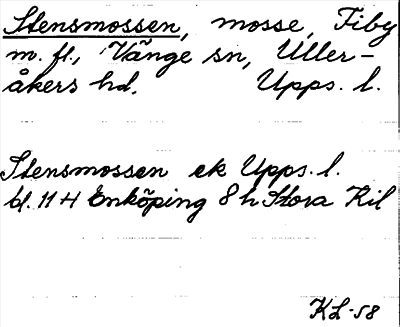 Stensmossen, mosse, Fiby
m. fl., Vänge sn, Uller-
åkers hd. Upps. l.
Stensmossen ek Upps. l.
bl. 114 Enköping 8 h Stora Kil
KL-58